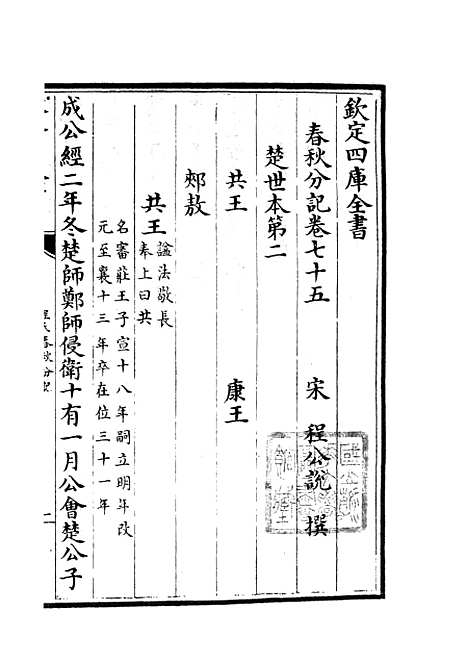 欽定四庫全書
春秋分記卷七十五　宋　程公說　撰
楚世本第二
共王　康王
郟敖
共王諡法敬長奉上曰共
名審莊王子宣十八年嗣立明年改
元至襄十三年卒在位三十一年
成公經二年冬楚師鄭師侵衛十有一月公會楚公子
春秋分記